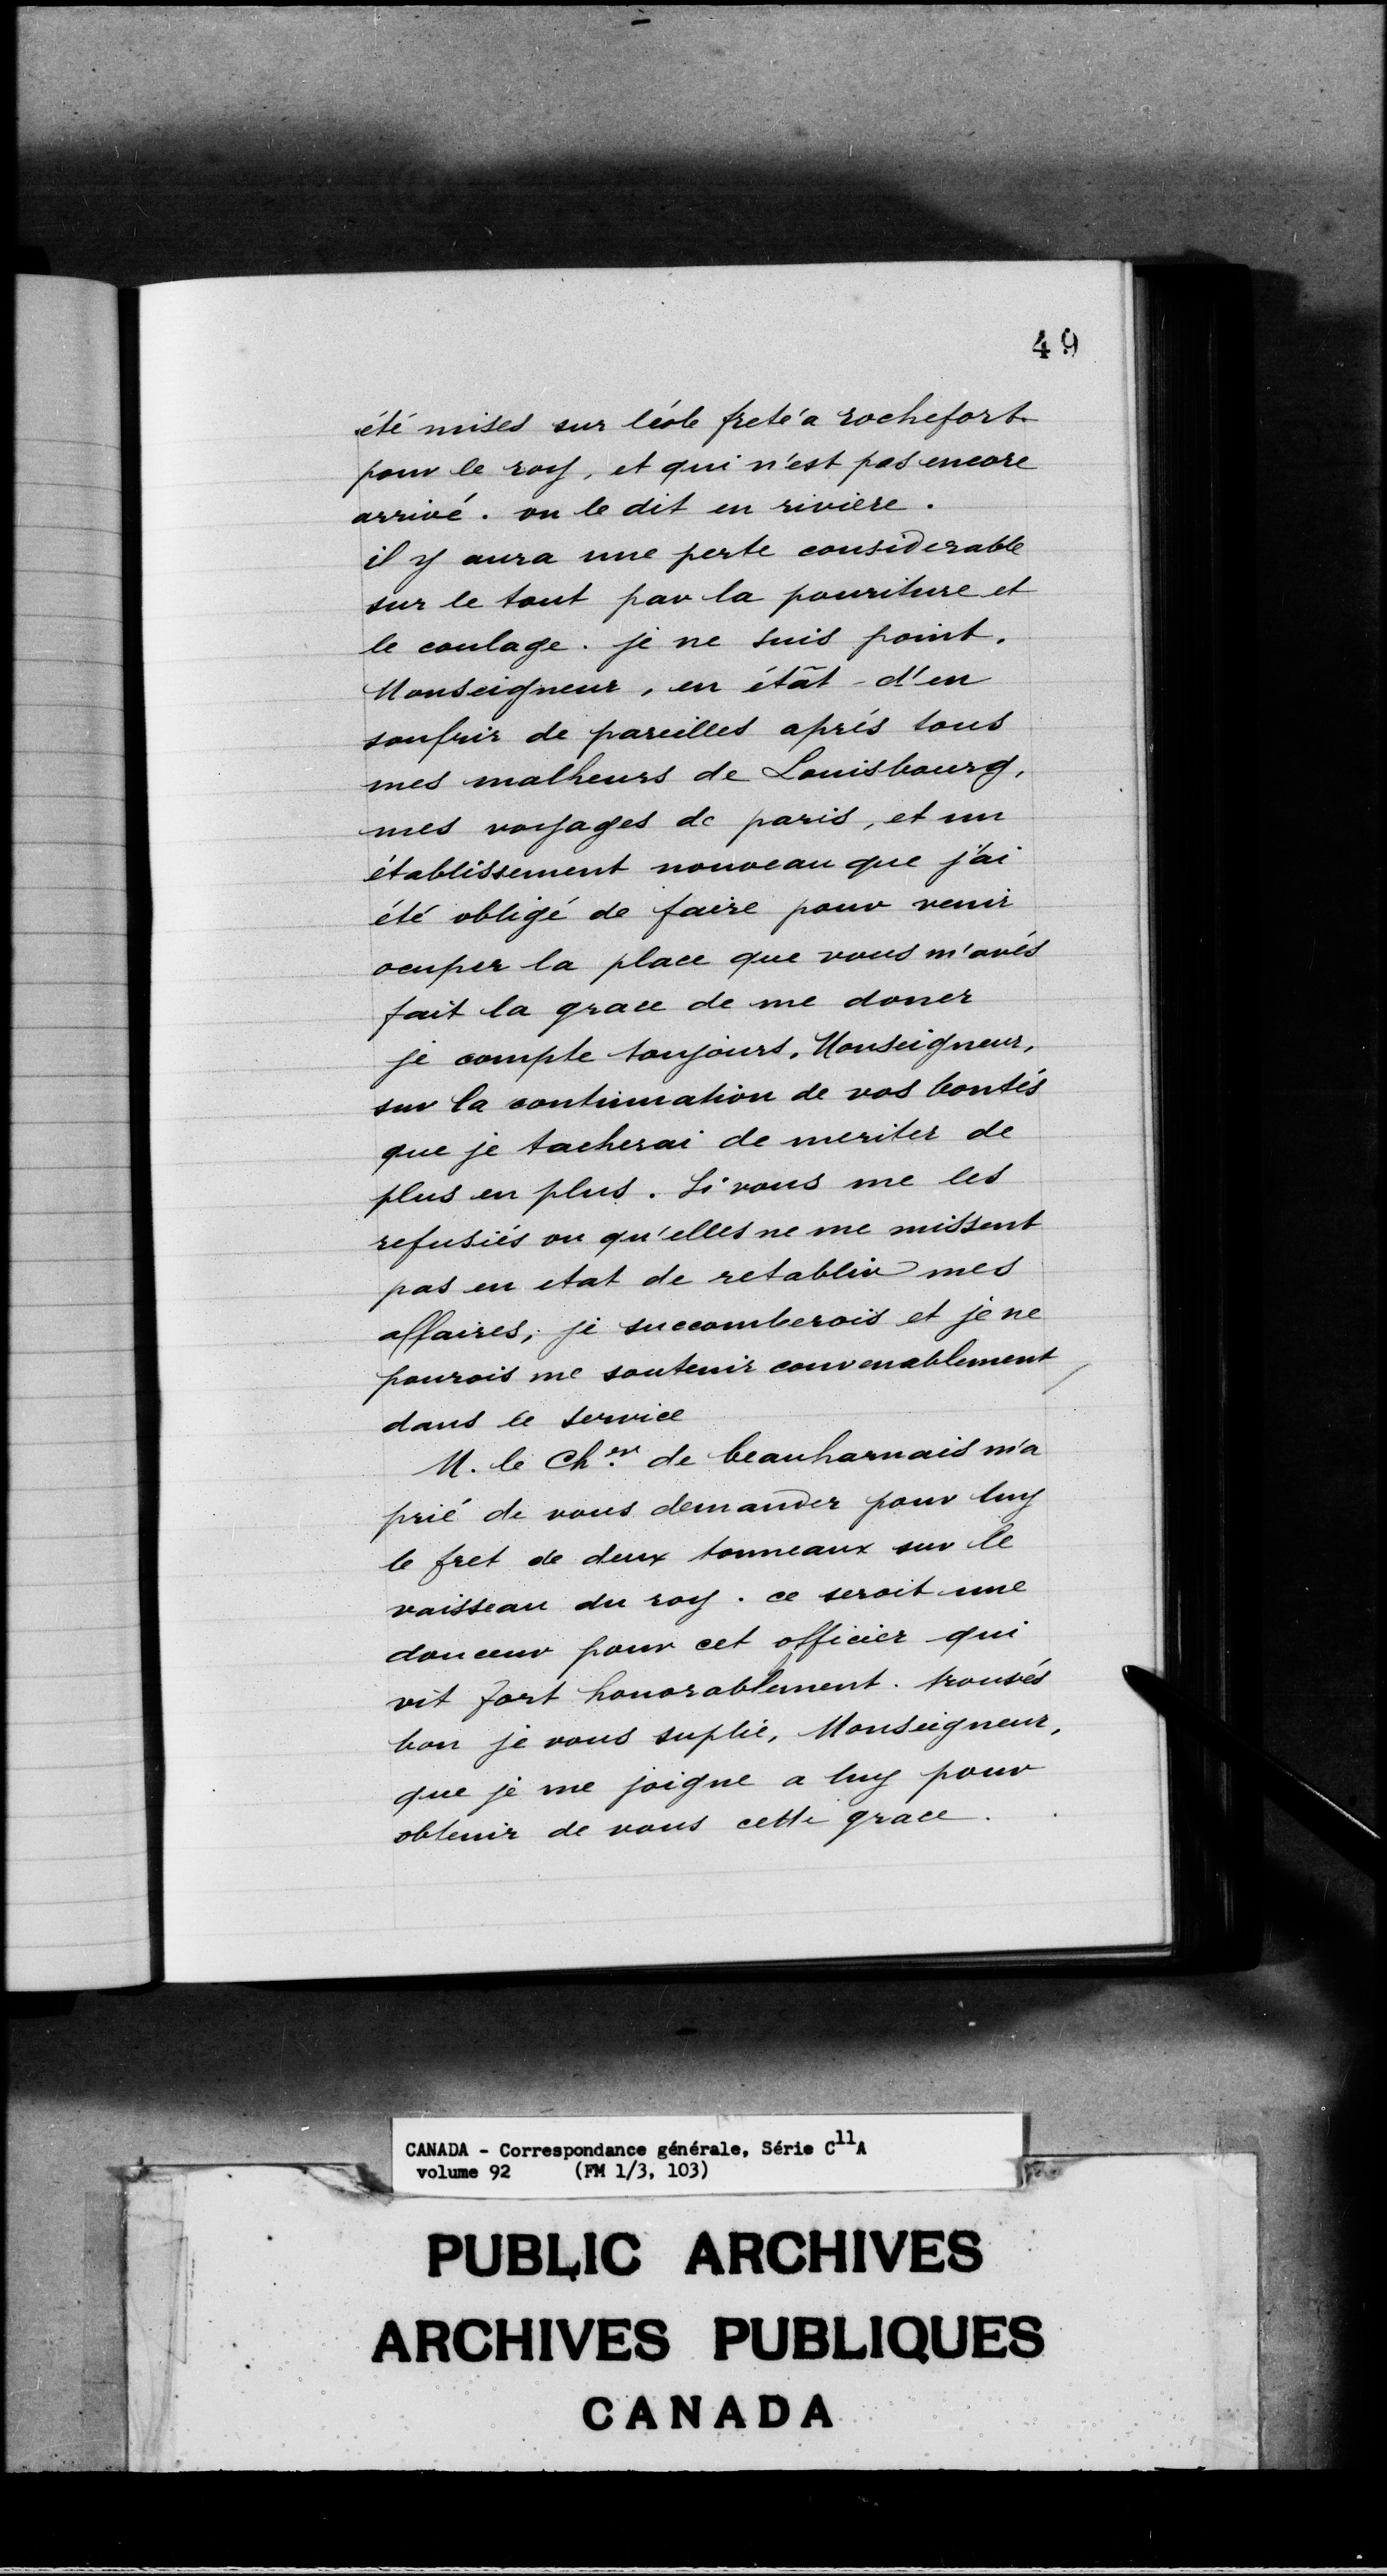 49
été mises sur léole freté a rochefort
pour le roy, et qui n'est pas encore
arrivé. on le dit en riviere.
il y aura une perte considerable
sur le tout par la pouriture et
le coulage. je ne suis point,
Monseigneur, en étât d'en
soufrir de pareilles aprés tous
mes malheurs de Louisbourg,
mes voyages de paris, et un
établissement nouveau que j'ai
été obligé de faire pour venir
ocuper la place que vous m'avés
fait la grace de me doner
je compte toujours, Monseigneur,
sur la continuation de vos bontés
que je tacherai de meriter de
plus en plus. Si vous me les
refusiés ou qu'elles ne me missent
pas en etat de retablir mes
affaires, je succomberois et je ne
pourois me soutenir convenablement
dans le service
M. le Cher. de beauharnais m'a
prié de vous demander pour luy
le fret de deux tonneaux sur le
vaisseau du roy. ce seroit une
douceur pour cet officier qui
vit fort honorablement. trouvés
bon je vous suplie, Monseigneur,
que je me joigne a luy pour
obtenir de vous cette grace.
CANADA - Correspondance générale, Série C11A
volume 92 (FM 1/3, 103)
PUBLIC ARCHIVES
ARCHIVES PUBLIQUES
CANADA